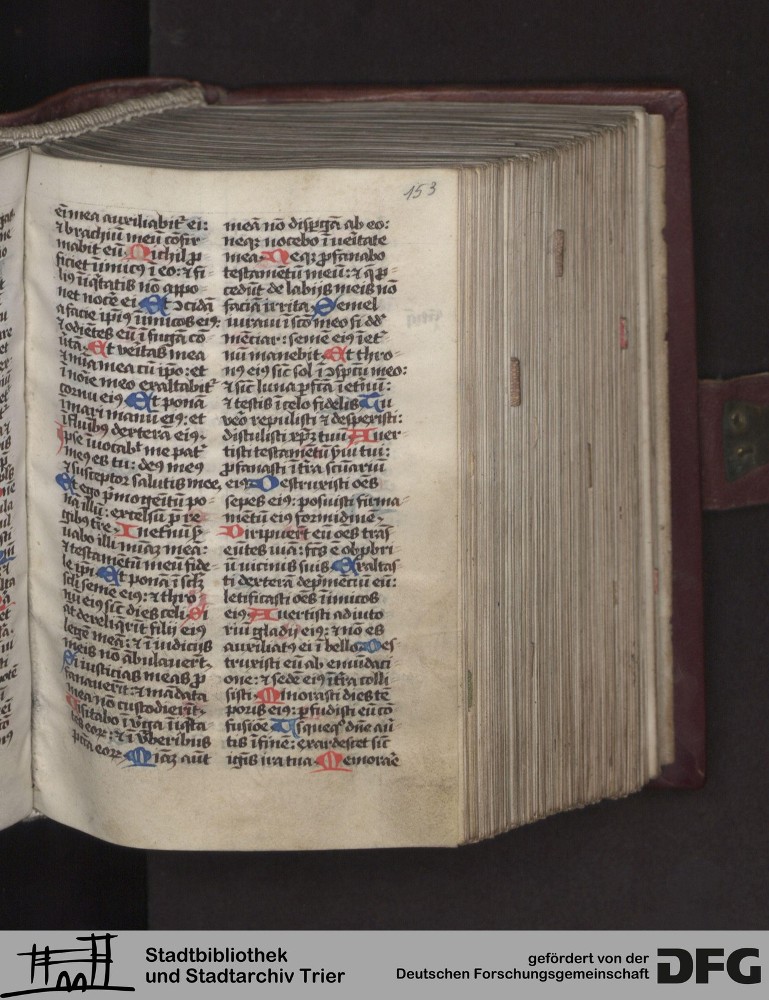 153
eī mea auxiliabit᷑ ei:
⁊ brachiū meū cōfir
mabit eū. Nichil ꝓ
ficiet īimicꝰ ī eo: ⁊ fi
liꝰ īiq̄tatis nō appo
net nocē ei. Et ↄcidā
a facie ipiꝰ īimicos eiꝰ:
⁊ odiētes eū ī fugā cō
ūtā. Et veritas mea
⁊ mīa mea cū ipo: et
ī noīe meo exaltabit᷑
cornu eiꝰ. Et ponā
ī mari manū eiꝰ: et
ī fluībꝰ dexterā eiꝰ.
Ipse īuocabᷝ me pat᷑
meꝰ es tu: deꝰ meꝰ
⁊ susceptor salutis mee,
Et ego p̄mogeītū po
nā illū: excelsū p̄ re
gibꝰ t̄re. Inet̄nū ẜ
uabo illi mīaꝫ meā:
⁊ testamētū meū fide
le ipi. Et ponā ī sc̄ꝫ
sc̄li semē eiꝰ: ⁊ thro
nū eiꝰ sic̄ dies celi. Si
at dereliq̄rīt filij eiꝰ
legē meā: ⁊ ī iudicijs
meis nō ābulauert̄.
Si iusticias meas ꝓ
fanauerīt: ⁊ mādata
mea nō custodierīt.
Uisitabo ī v̄ga īiq̄ta
tes eoꝝ: ⁊ ī v̄beribus
pctā eoꝝ. Mīaꝫ aūt
meā nō disp̄gā ab eo:
neqꝫ nocebo ī ueītate
mea. Neqꝫ ꝓfanabo
testamētū meū: ⁊ q̄ p̄
cedūt de labijs meis nō
faciā irrita. Semel
iuraui ī sc̄o meo si dđ
mēciar: semē eiꝰ ī et᷑
nū manebit. Et thro
nꝰ eiꝰ sic̄ sol ī ↄspc̄u meo:
⁊ sic̄ luna pfc̄a ī et̄nū:
⁊ testis ī celo fidelis. Tu
veo repulisti ⁊ despexisti:
distulisti xp̄ꝫ tuū. Auer
tisti testamētū s̄ui tui:
ꝓfanasti ī t̄ra sc̄uariū
eiꝰ. Destruxisti oēs
sepes eiꝰ: posuisti firma
mētū eiꝰ formidinē.
Diripuer̄t eū oēs trās
eūtes uiā: fc̄ꝰ ē obpbri
ū uicinis suis. Exaltas
ti dexterā dep̄mēciū eū:
letificasti oēs īimicos
eiꝰ. Auertisti adiuto
riū gladij eiꝰ: ⁊ nō es
auxiliatꝰ ei ī bello. Des
truxisti eū ab emūdaci
one: ⁊ sedē eiꝰ ī t̄ra colli
sisti. Minorasti dies tē
poris eiꝰ: ꝑfudisti eū cō
fusiōe. Usqueqᵒ dn̄e au᷑
tis ī finē: exardescet sic̄
ignis ira tua. Memorare
Stadtbibliothek
und Stadtarchiv Trier
gefördert von der
Deutschen Forschungsgemeinschaft
DFG